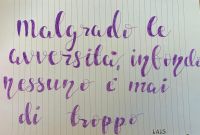 Malgrado le
avversità, infondo
nessuno è mai
di troppo